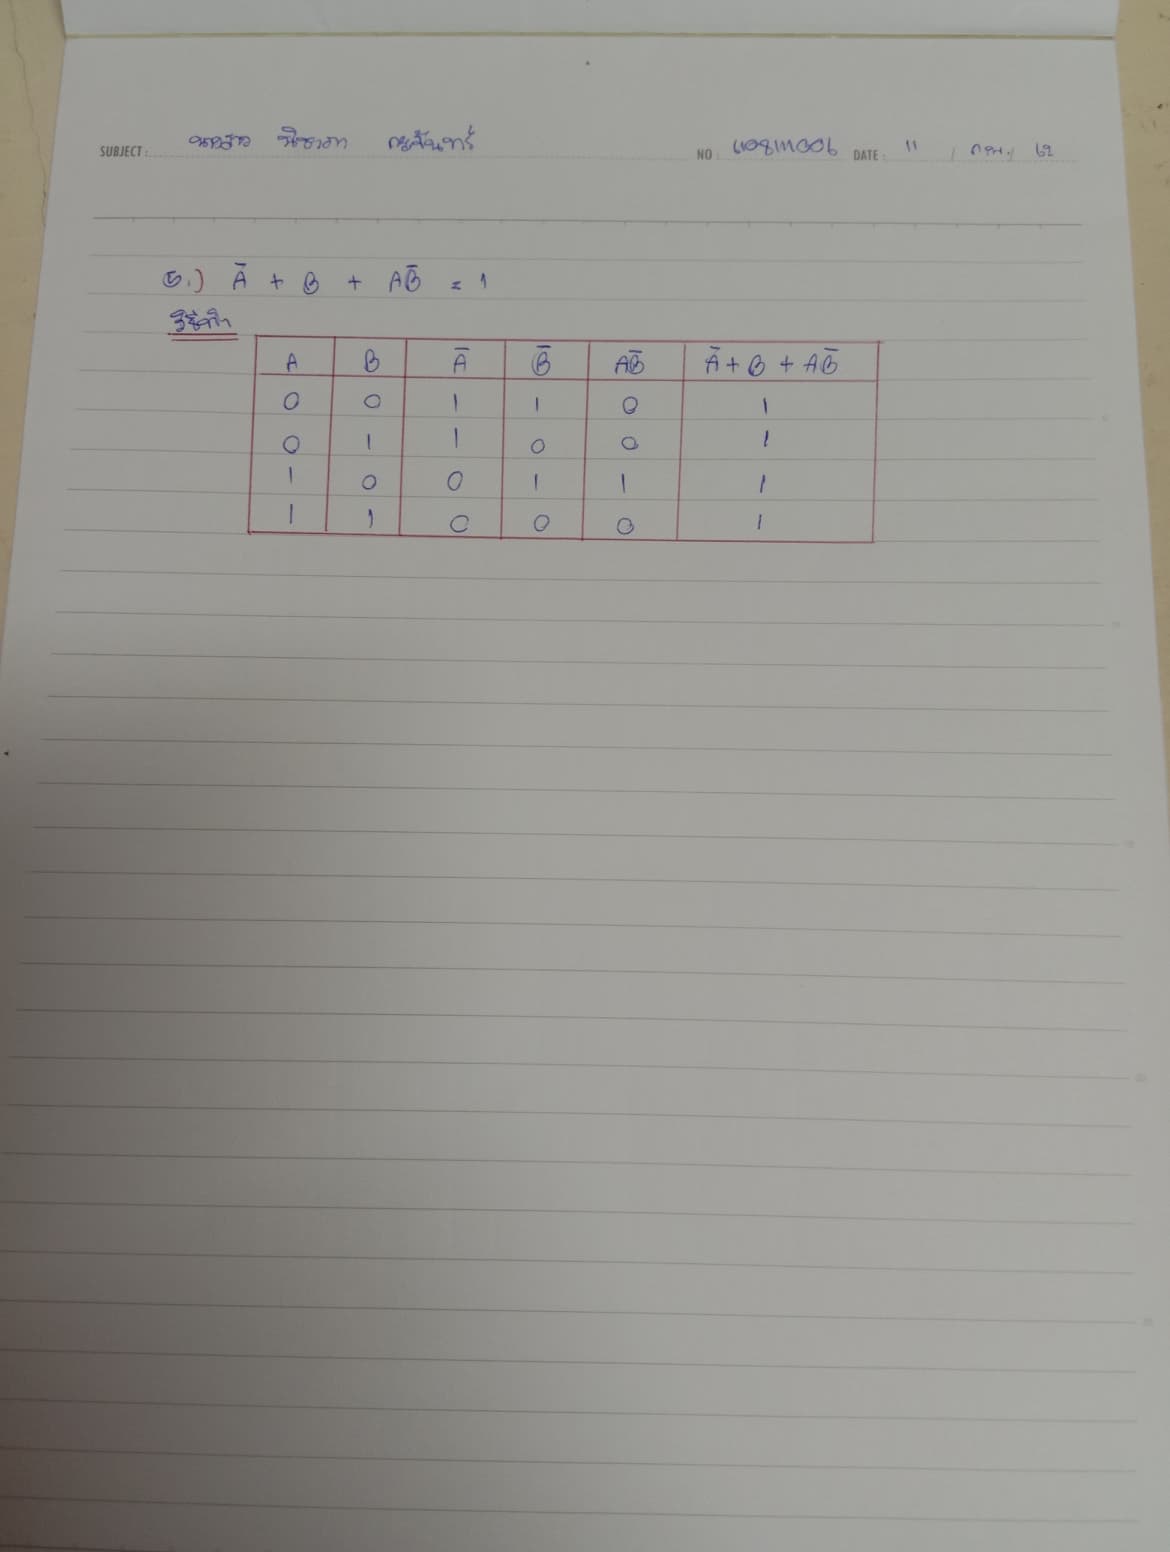 SUBJECT: นางสาว นิชาภา กะจันทร์ NO: 6108111006 DATE: 11 / กพ. / 62
5.) Ā + B + AB̄ = 1
วิธีทำ
A B Ā B̄ AB̄ Ā + B + AB̄
0 0 1 1 0 1
0 1 1 0 0 1
1 0 0 1 1 1
1 1 0 0 0 1